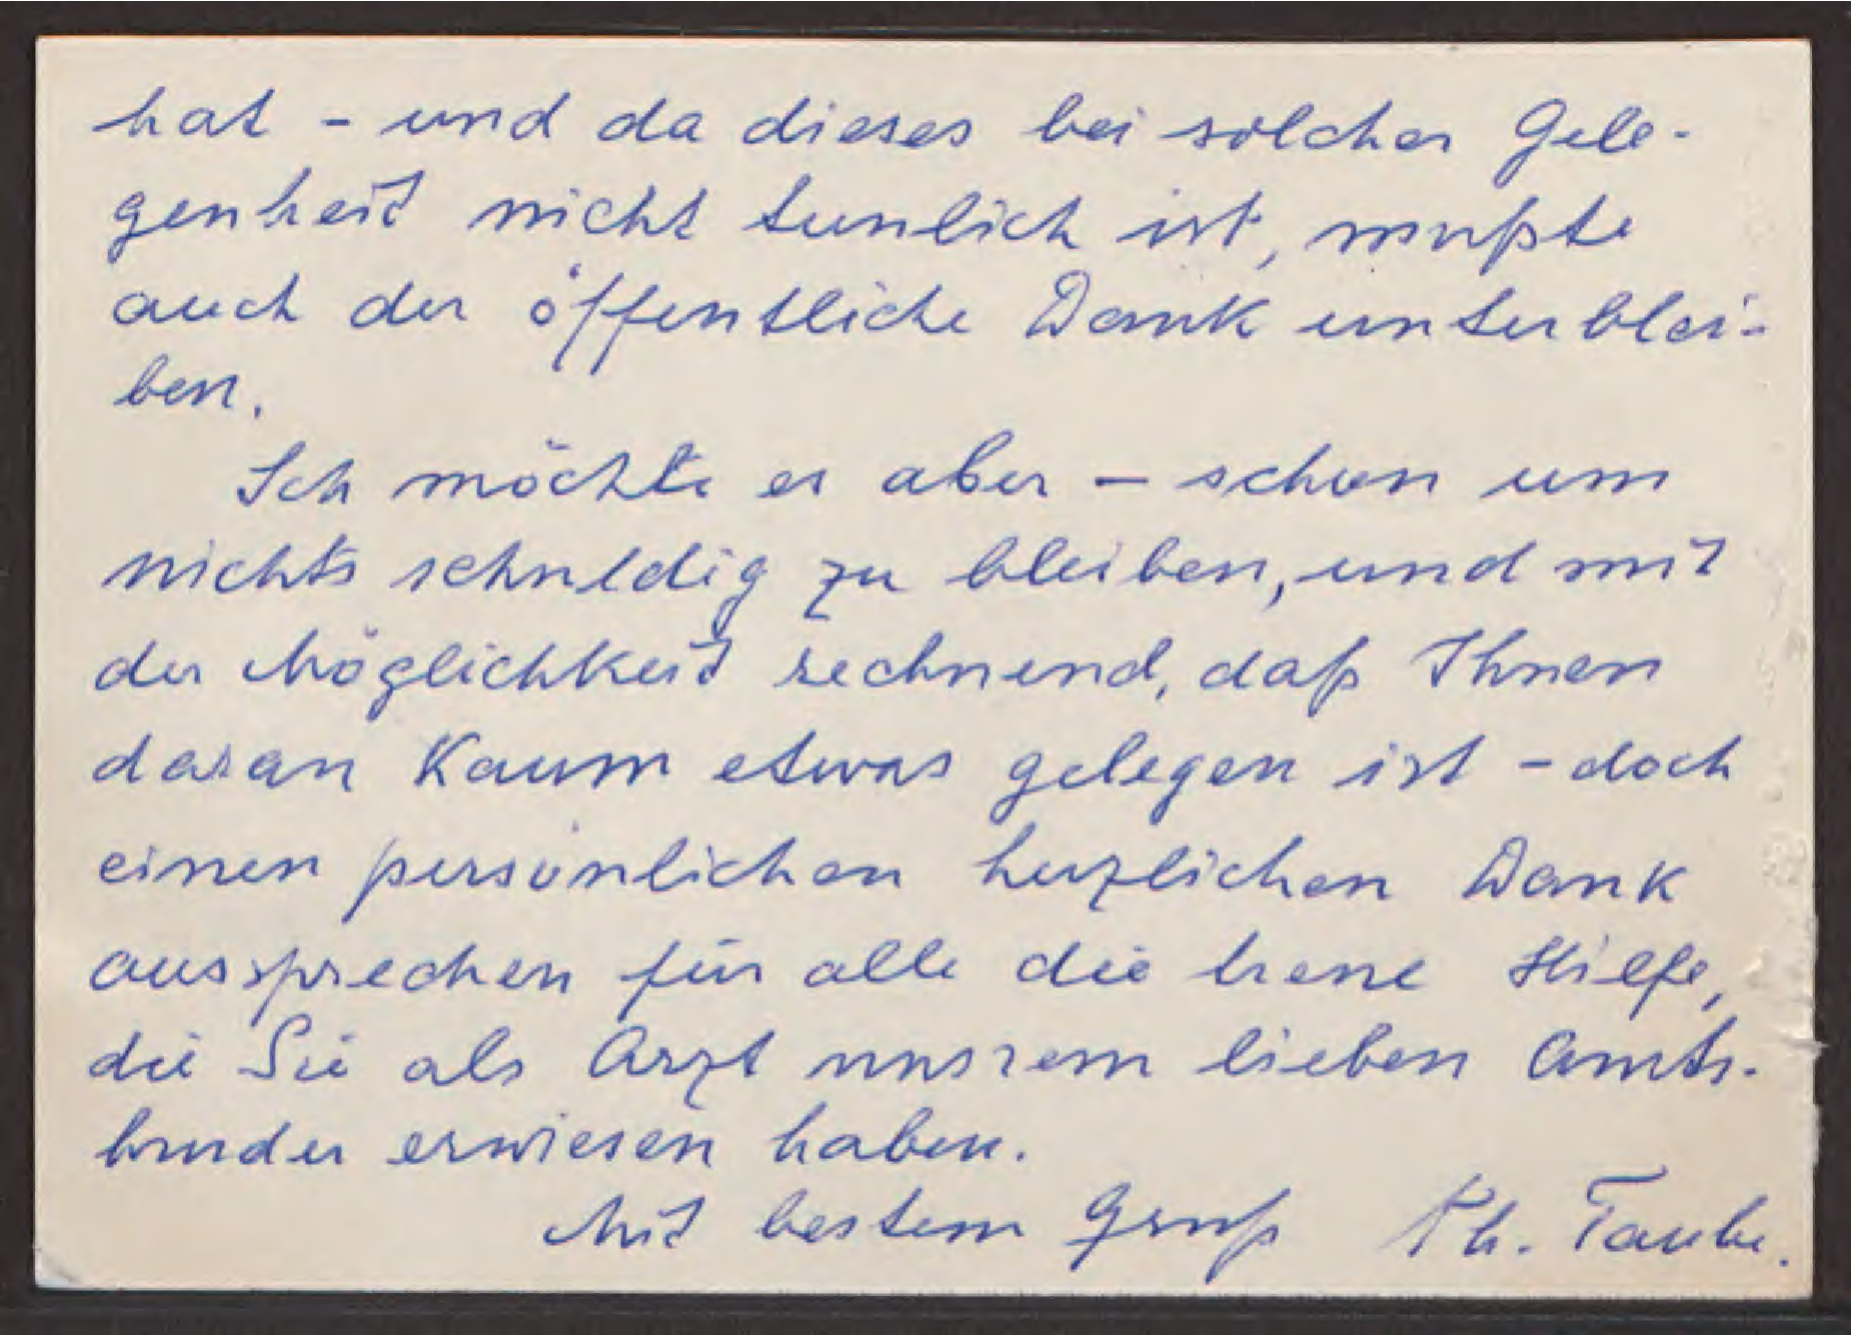 hat - und da dieses bei solcher Gele-
genheit nicht tunlich ist, mußte
auch der öffentliche Dank unterblei-
ben.
Ich möchte es aber – schon um
nichts schuldig zu bleiben, und mit
der Möglichkeit rechnend, daß Ihnen
daran kaum etwas gelegen ist - doch
einen persönlichen herzlichen Dank
aussprechen für alle die treue Hilfe,
die Sie als Arzt unsrem lieben Amts-
bruder erwiesen haben.
Mit bestem Gruß Th. Taube.